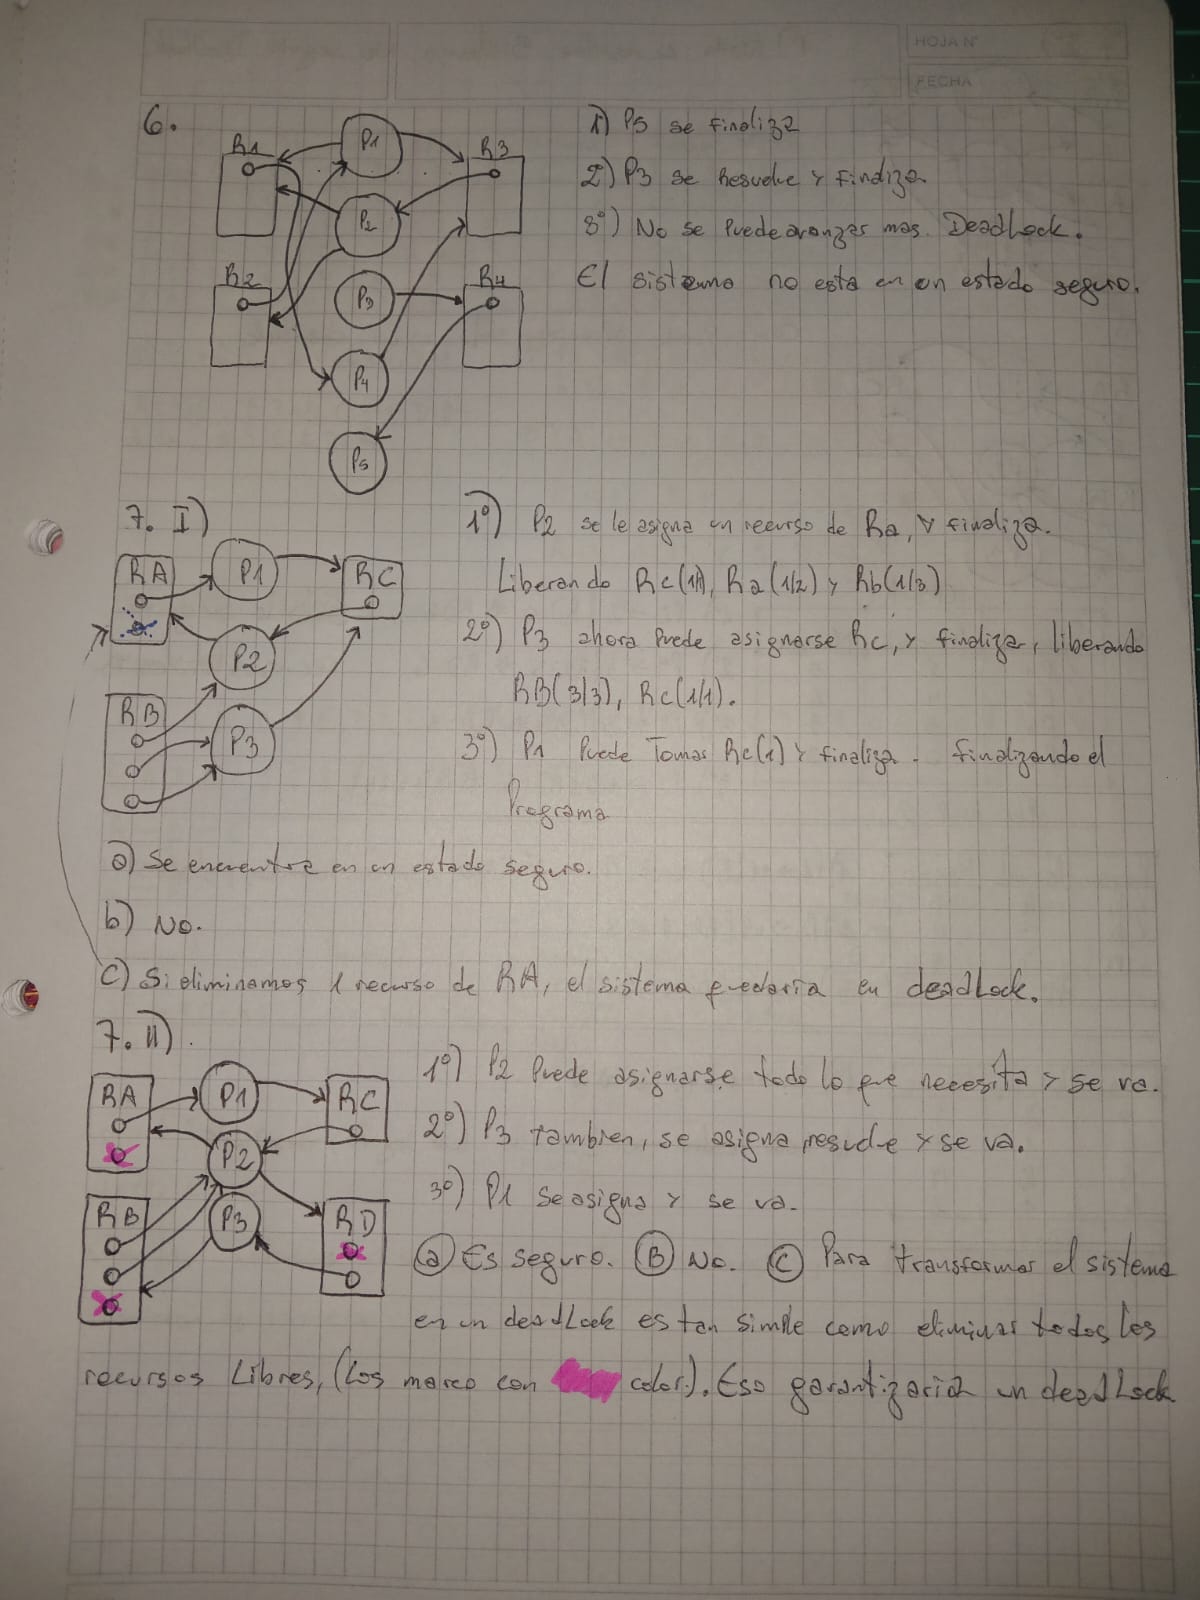 HOJA Nº
FECHA
6.
R1
P1
R3
P2
R2
P3
R4
P4
P5
1º) P5 se finaliza
2º) P3 se Resuelve y finaliza
3º) No se Puede avanzar mas. DeadLock.
El sistema no esta en un estado seguro.
7. I)
RA
P1
RC
P2
RB
P3
1º) P2 se le asigna un recurso de Ra, y finaliza.
Liberando Rc(1/1), Ra(1/2) y Rb(1/3)
2º) P3 ahora Puede asignarse Rc, y finaliza, liberando
RB(3/3), Rc(1/1).
3º) P1 Puede Tomar Rc(1) y finaliza. finalizando el
Programa
a) Se encuentra en un estado seguro.
b) No.
C) Si eliminamos 1 recurso de RA, el sistema quedaria en deadLock.
7. II)
RA
P1
RC
P2
RB
P3
RD
1º) P2 Puede asignarse todo lo que necesita y se va.
2º) P3 tambien, se asigna, resuelve y se va.
3º) P1 se asigna y se va.
a Es seguro. B No. C Para transformar el sistema
en un deadLock es tan simple como eliminar todos los
recursos Libres, (Los marco con color). Eso garantizaria un deadLock